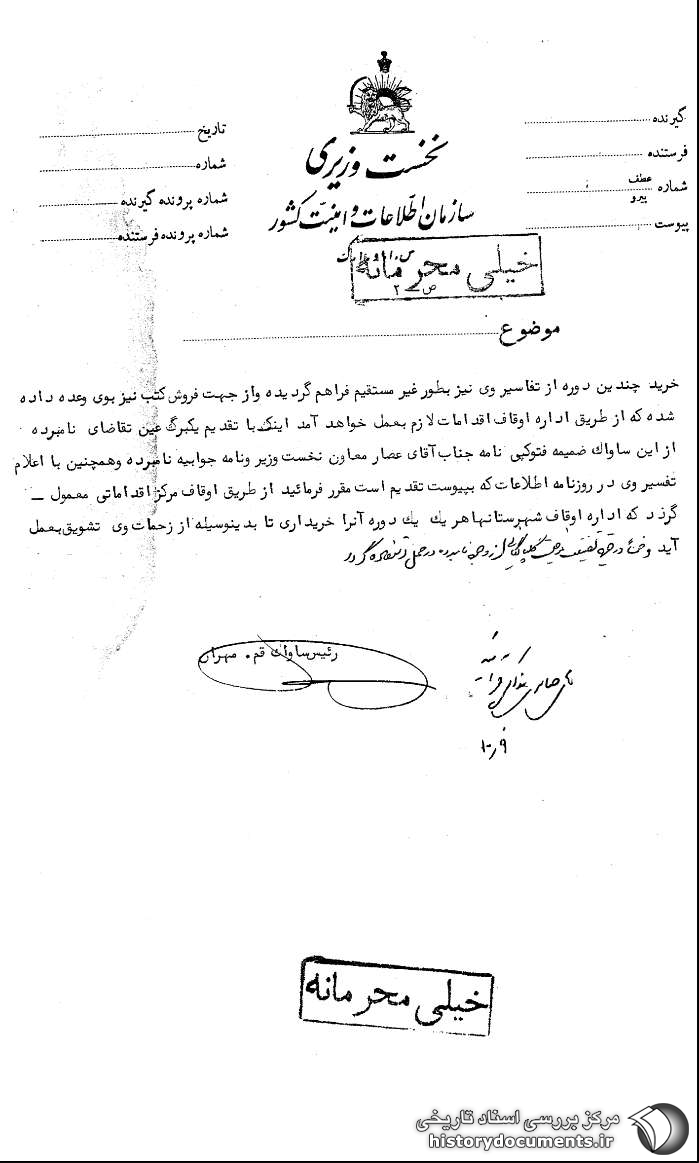 گیرنده
فرستنده
شماره عطف پیرو
پیوست
تاریخ
شماره
شماره پرونده گیرنده
شماره پرونده فرستنده
نخست وزیری
سازمان اطلاعات و امنیت کشور
س.ا.و.ا.ک
خیلی محرمانه
ص ۲
موضوع
خرید چندین دوره از تفاسیر وی نیز بطور غیر مستقیم فراهم گردیده و از جهت فروش کتب نیز بوی وعده داده
شده که از طریق اداره اوقاف اقدامات لازم بعمل خواهد آمد اینک با تقدیم یکبرگ عین تقاضای نامبرده
از این ساواک ضمیمه فتوکپی نامه جناب آقای عصار معاون نخست وزیر ونامه جوابیه نامبرده وهمچنین با اعلام
تفسیر وی در روزنامه اطلاعات که بپیوست تقدیم است مقرر فرمائید از طریق اوقاف مرکز اقداماتی معمول ـ
گردد که اداره اوقاف شهرستانها هر یک یک دوره آنرا خریداری تا بدینوسیله از زحمات وی تشویق بعمل
آید و
رئیس ساواک قم . مهران
خیلی محرمانه
مرکز بررسی اسناد تاریخی
historydocuments.ir